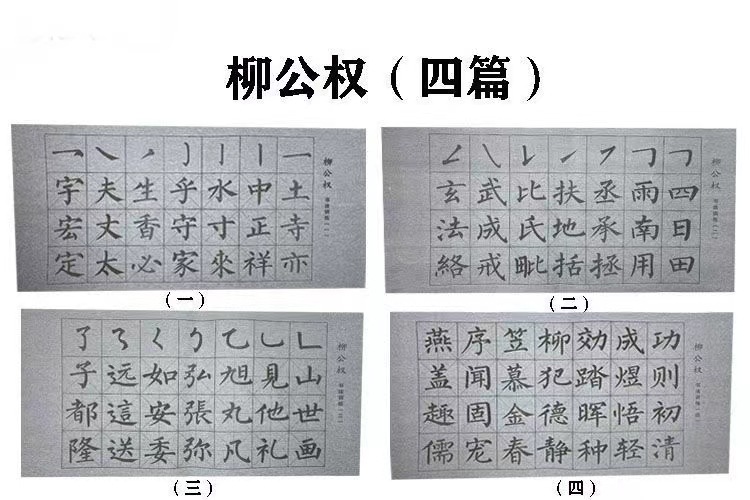 柳公权（四篇）
一㇏㇒亅亅丨一
宇夫生乎水中土
宏丈香守寸正寺
定太必家來祥亦
柳公权
（一）
𠃋㇂㇀㇇㇆
玄武比扶丞雨四
法成氏地承南日
絡戒毗括拯用田
柳公权
（二）
了㇋㇛㇉乙乚𠃊
子远如弘旭見山
都這安張丸他世
隆送委弥凡礼画
柳公权
（三）
燕序笠柳効成功
盖闻慕犯踏煜则
趣固金德晖悟初
儒宠春静种轻清
柳公权
（四）